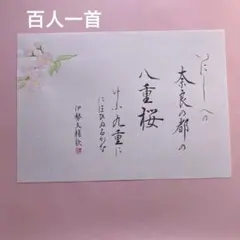 百人一首
いにしへの
奈良の都の
八重桜
けふ九重に
にほひぬるかな
伊勢大輔